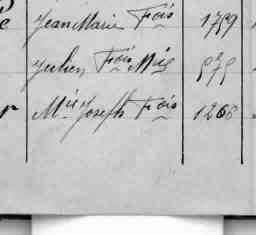 Jean Marie Fois 1759
Julien Fois Mie 575
Mie Joseph Fois 1268